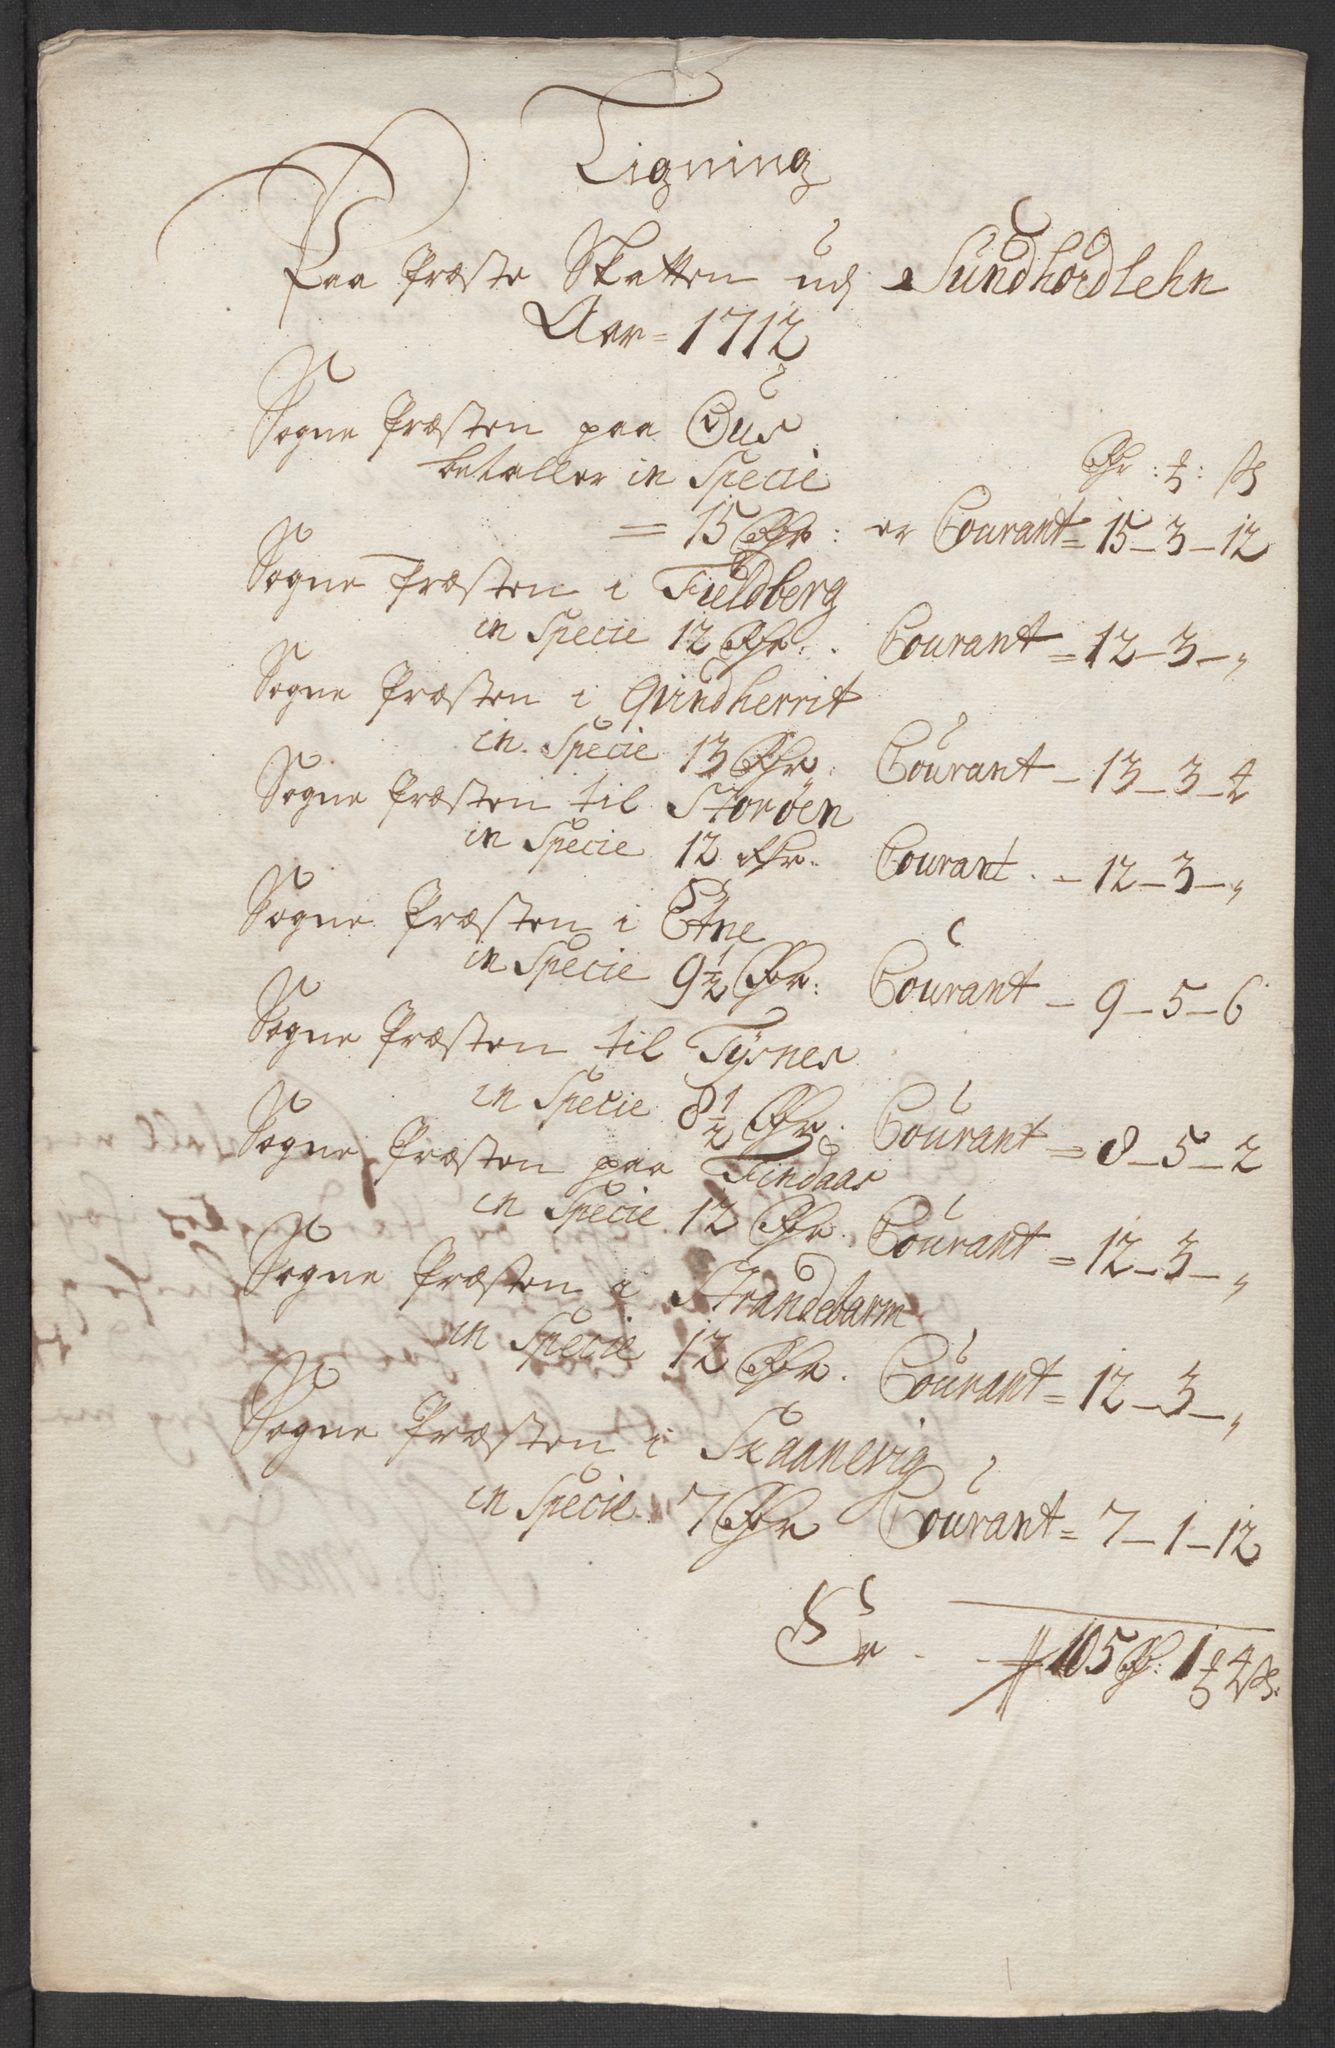 Ligning
Paa Præste Skatten udj Sundhordlehn
Aar = 1712
Sogne Præsten paa Ous
betaller in Specie
Rdr : ꝸ : ß
= 15 Rdr: er Courant = 15 – 3 – 12
Sogne Præsten i Fieldberg
in Specie 12 Rdr. . Courant = 12 – 3 – „
Sogne Præsten i Qvindherrit
in Specie 13 Rdr. Courant – 13 – 3 – 4
Sogne Præsten til Storøen
in Specie 12 Rdr. Courant . – 12 – 3 – „
Sogne Præsten i Etne
in Specie 9½ Rdr: Courant – 9 – 5 – 6
Sogne Præsten til Tysnes
in Specie 8½ Rdr. Courant = 8 – 5 – 2
Sogne Præsten paa Findaas
in Specie 12 Rdr. Courant = 12 – 3 – „
Sogne Præsten i Strandebarm
in Specie 12 Rdr. Courant = 12 – 3 – „
Sogne Præsten i Skaanevig
in Specie 7 Rdr Courant = 7 – 1 – 12
Er . . 105 Rd: 1 ꝸ 4 ß.